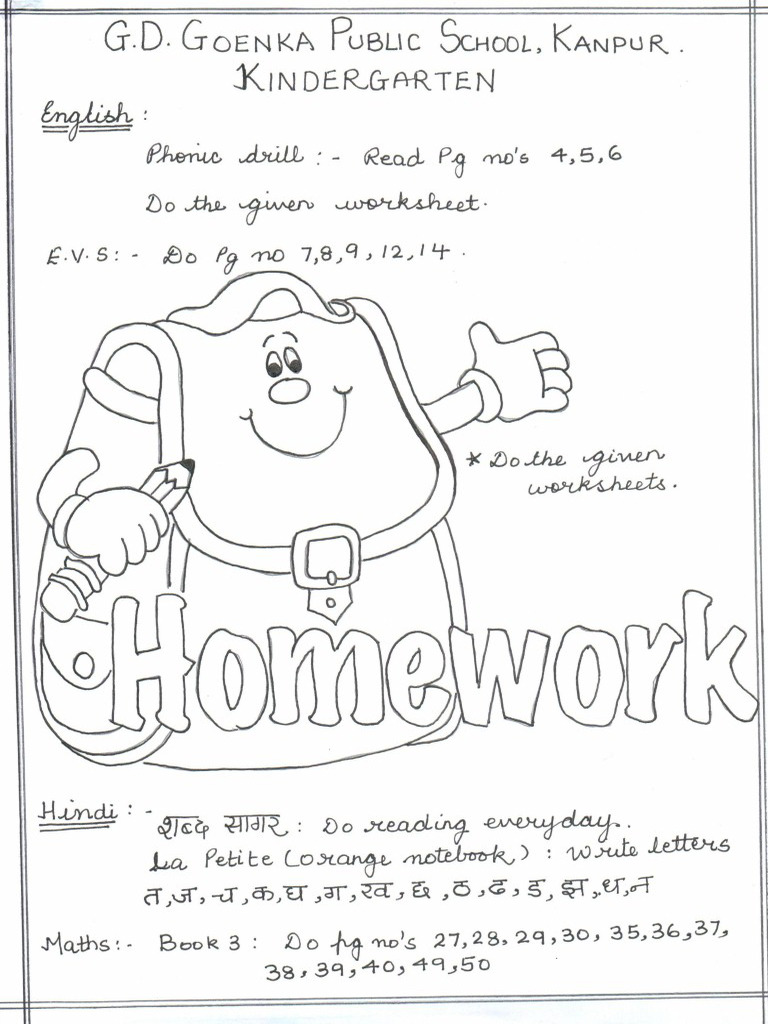 G.D. GOENKA PUBLIC SCHOOL, KANPUR.
KINDERGARTEN
English :
Phonic drill :- Read Pg no's 4,5,6
Do the given worksheet.
E.V.S:- Do Pg no 7,8,9,12,14.
* Do the given
worksheets.
Homework
Hindi :-
शब्द सागर : Do reading everyday.
La Petite (orange notebook) : Write letters
त,ज,च,क,घ,ग,ख,छ,ठ,ढ,ड,झ,ध,न
Maths:- Book 3 : Do pg no's 27,28,29,30,35,36,37,
38,39,40,49,50